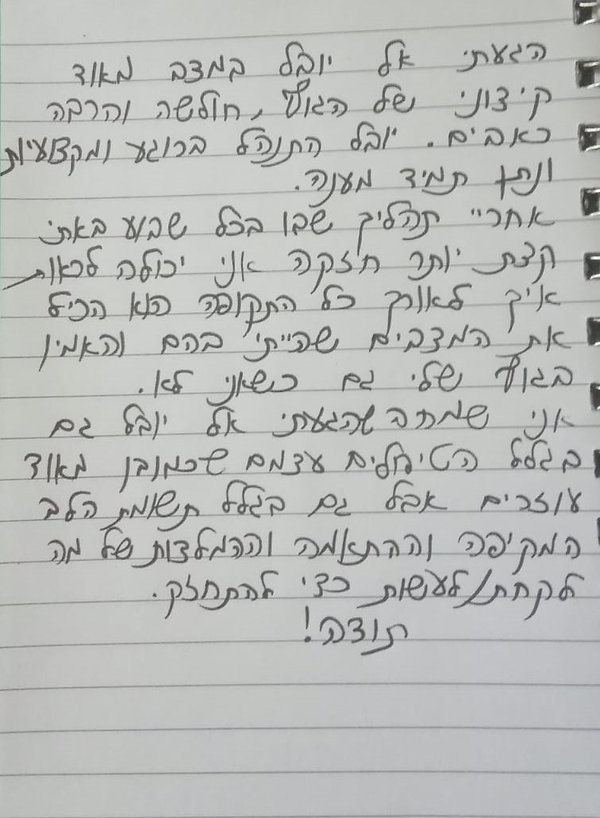 הגעתי אל יובל במצב מאוד
קיצוני של הגוף, חולשה והרבה
כאבים. יובל התנהל ברוגע ומקצועיות
ונתן תמיד מענה.
אחריי תהליך שבו בכל שבוע באתי
קצת יותר חזקה אני יכולה לראות
איך לאורך כל התקופה הוא הכיל
את המצבים שהייתי בהם והאמין
בגוף שלי גם כשאני לא.
אני שמחה שהגעתי אל יובל גם
בגלל הטיפולים עצמם שכמובן מאוד
עוזרים אבל גם בגלל תשומת הלב
המקיפה וההתאמה וההמלצות של מה
לקחת/לעשות כדי להתחזק.
תודה!